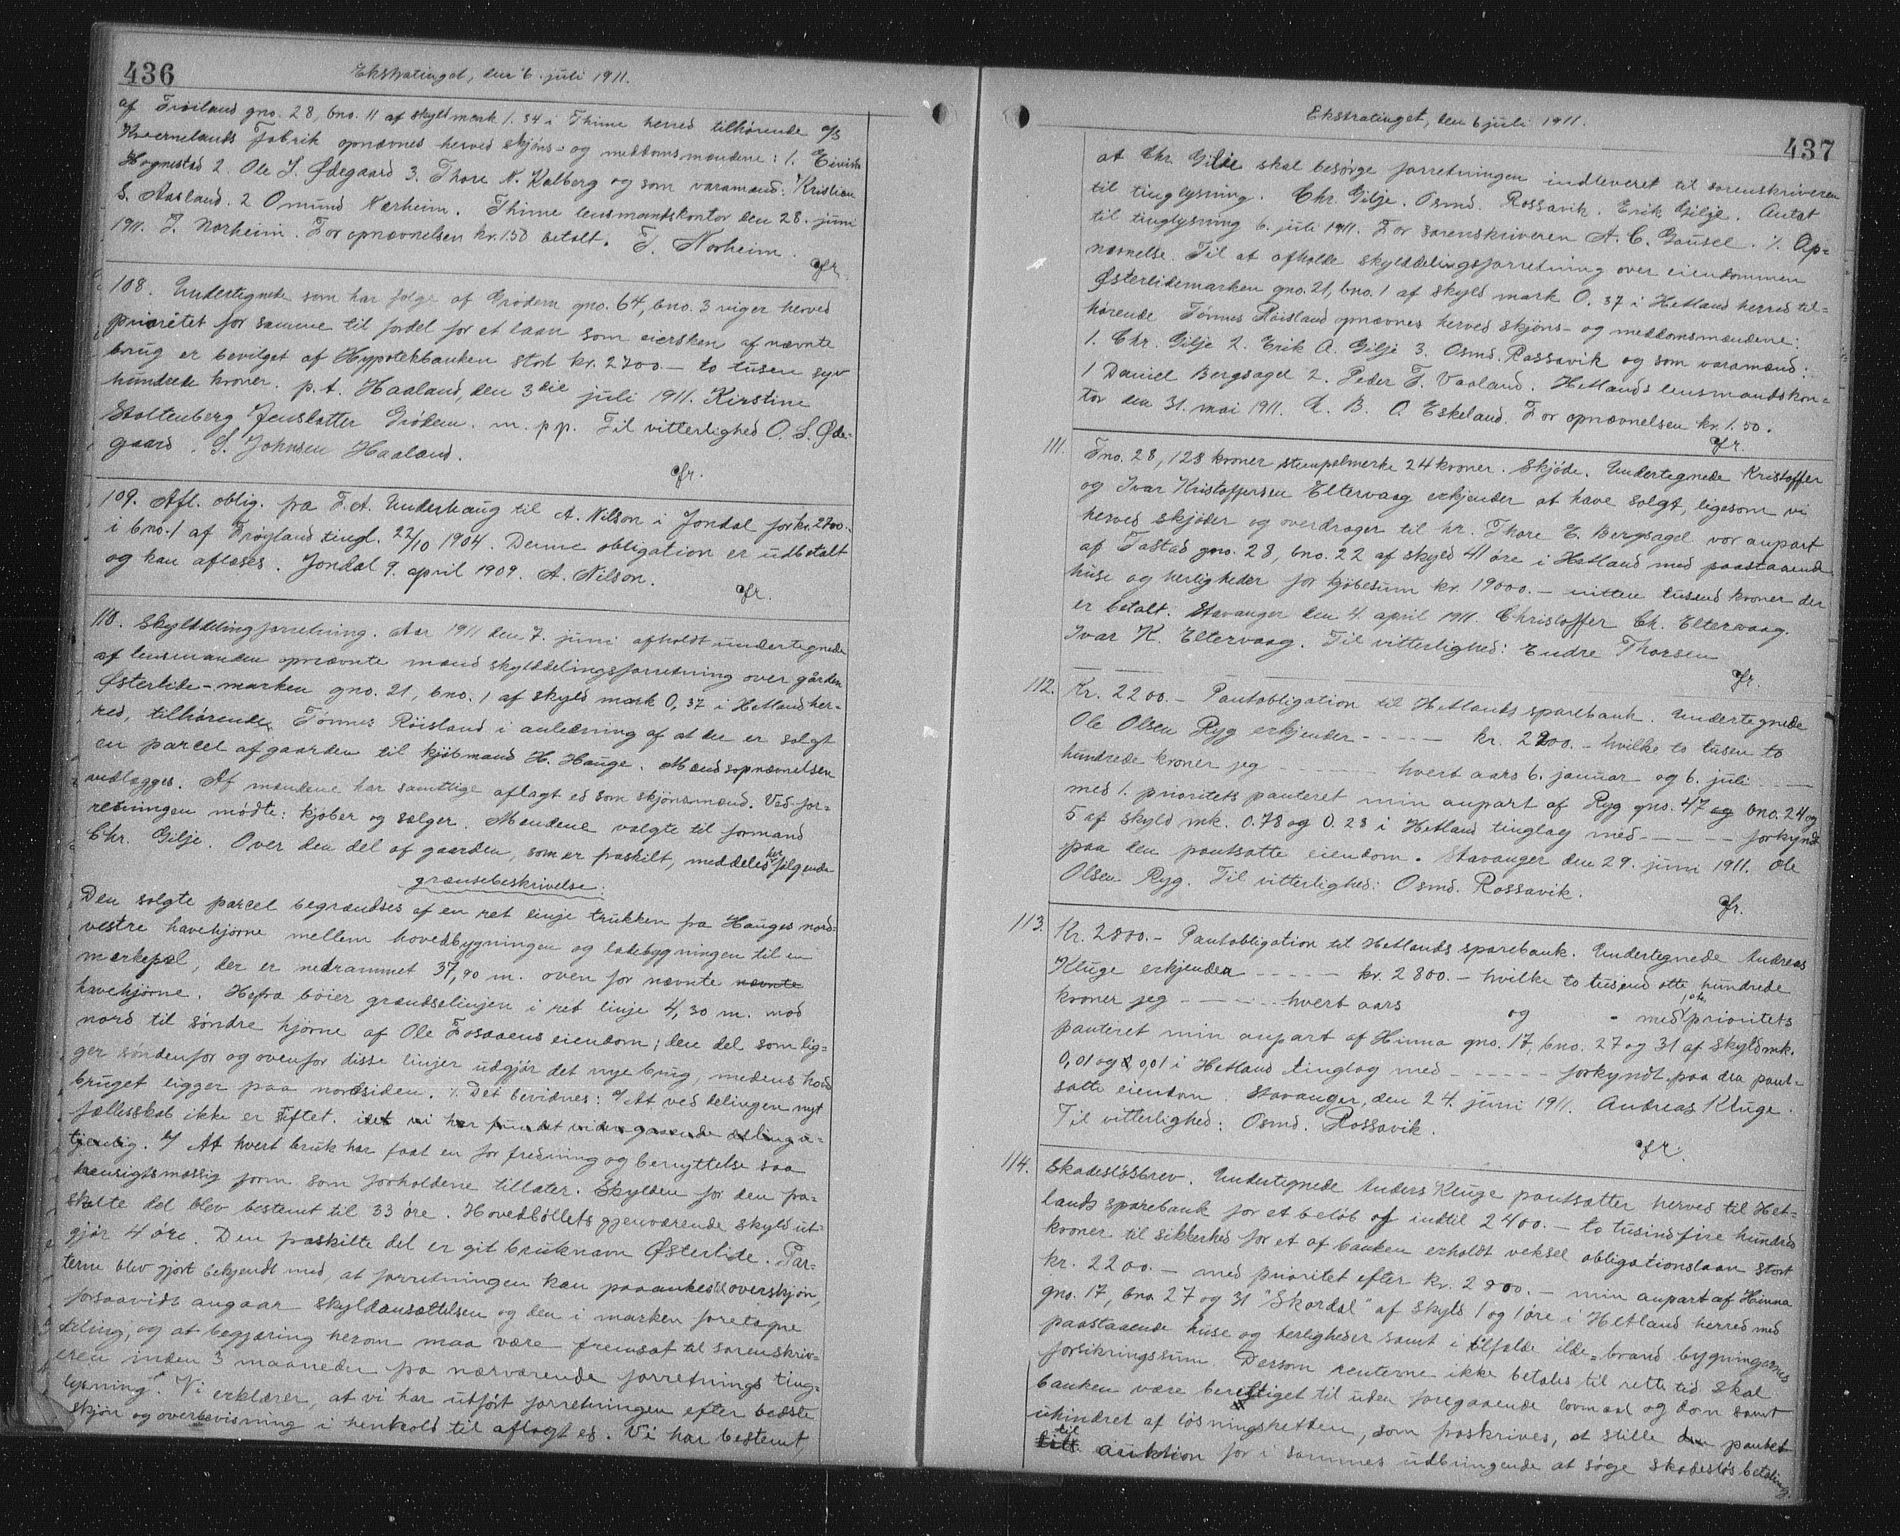 436
Ekstratinget, den 6. juli 1911.
af Frøiland gno. 28, bno. 11 af skyldmark 1.34 i Thime herred tilhørende a/s
Kvernelands Fabrik opnævnes herved skjøns- og meddomsmændene: 1. Eivind
Hognestad 2. Ole S. Ødegaard 3. Thore N. Kalberg og som varamænd: 1 Kristian
S. Aasland. 2 Omund Nærheim. Thime lensmandskontor den 28. juni
1911. T. Norheim. For opnævnelsen kr. 1.50 betalt. T. Norheim.
Gfr.
108. Undertegnede som har følge af Grødem gno. 64, bno. 3 viger herved
prioritet for samme til fordel for et laan som eiersken af nævnte
brug er bevilget af Hypotekbanken stort kr. 2700 - to tusen syv
hundrede kroner. p.t. Haaland, den 3die juli 1911. Kirstine
Stoltenberg Jensdatter Grødem. m. p.p. Til vitterlighed O. S. Øde-
gaard. S. Johnsen Haaland.
Gfr.
109. Afl. oblig. fra F. A. Underhaug til A. Nilson i Jondal for kr. 2700.-
i bno. 1 af Frøyland tingl. 22/10 1904. Denne obligation er udbetalt
og kan aflæses. Jondal 9. april 1909. A. Nilson.
Gfr.
110. Skylddelingforretning. Aar 1911 den 7. juni afholdt undertegnede
af lensmanden opnævnte mænd skylddelingsforretning over gården
Østerlide-marken gno. 21, bno. 1 af skyld mark 0,37 i Hetland her-
red, tilhørende Tønnes Røisland i anledning af at der er solgt
en parcel af gaarden til kjøbmand H. Hauge. Mændsopnævnelsen
vedlægges. Af mændene har samtlige aflagt ed som skjønsmænd. Ved for-
retningen mødte: kjøber og sælger. Mændene valgte til formand
Chr. Gilje. Over den del af gaarden, som er fraskilt, meddeles her følgende
grænsebeskrivelse:
Den solgte parcel begrændses af en ret linje trukken fra Hauges nord-
vestre havehjørne mellem hovedbygningen og ladebygningen til en
merkepæl, der er nedrammet 37,90 m. oven for nævnte nævnte
havehjørne. Herfra bøier grændselinjen i ret linje 4,30 m. mod
nord til søndre hjørne af Ole Fossaens eiendom; den del som lig-
ger søndenfor og ovenfor disse linjer udgjør det nye brug, medens hoved-
bruget ligger paa nordsiden. ./. Det bevidnes: a/ At ved delingen nyt
fællesskab ikke er stiftet. idet vi har fundet vedergaaende deling u-
tjenlig. b/ At hvert bruk har faat en for fredning og benyttelse saa
hensigtsmæssig form som forholdene tillater. Skylden for den fra-
skilte del blev bestemt til 33 øre. Hovedbøllets gjenværende skyld ut-
gjør 4 øre. Den fraskilte del er git bruknavn Østerlide. Par-
terne blev gjort bekjendt med, at forretningen kan paaankes til overskjøn,
forsaavidt angaar skyldansættelsen og den i marken foretagne
deling, og at begjæring herom maa være fremsat til sorenskriv-
eren inden 3 maaneder fra nærværende forretnings ting-
lysning. Vi erklærer, at vi har utført forretningen efter bedste
skjøn og overbevisning i henhold til aflagt ed. Vi har bestemt,
Ekstratinget, den 6 juli 1911.
437
at Chr. Gilje skal besørge forretningen indleveret til sorenskriveren
til tinglysning. Chr. Gilje. Osmd. Rossavik. Erik Gilje. Antat
til tinglysning 6. juli 1911. For sorenskriveren A. C. Gausel. ./. Op-
nævnelse. Til at afholde skylddelingsforretning over eiendommen
Østerlidemarken gno. 21, bno. 1 af skyld mark 0.37 i Hetland herred til-
hørende Tønnes Røisland opnævnes herved skjøns- og meddomsmændene:
1. Chr. Gilje 2. Erik A. Gilje 3. Osmd. Rossavik og som varamænd:
1 Daniel Bergsagel 2. Peder T. Vaaland. Hetlands lensmandskon-
tor den 31. mai 1911. L. B. O Eskeland. For opnævnelsen kr. 1.50.
Gfr.
111. Fno. 28, 128 kroner stempelmerke 24 kroner. Skjøde. Undertegnede Kristoffer
og Ivar Kristoffersen Eltervaag erkjender at have solgt, ligesom vi
herved skjøder og overdrager til hr. Thore E. Bergsagel vor anpart
af Tastad gno. 28, bno. 22 af skyld 41 øre i Hetland med paastaaende
huse og herligheder for kjøbesum kr. 19000.- nitten tusend kroner der
er betalt. Stavanger den 4. april 1911. Christoffer Ch. Eltervaag.
Ivar K. Eltervaag. Til vitterlighed: Endre Thorsen
Gfr.
112. Kr. 2200.- Pantobligation til Hetlands sparebank. Undertegnede
Ole Olsen Ryg erkjender - - - - - kr. 2200.- hvilke to tusen to
hundrede kroner jeg - - - - - hvert aars 6. januar og 6. juli - - -
med 1. prioritets panteret min anpart af Ryg gno. 47 og bno. 24 og
5 af skyld mk. 0.78 og 0.28 i Hetland tinglag med - - - - forkyndt
paa den pantsatte eiendom. Stavanger den 29. juni 1911. Ole
Olsen Ryg. Til vitterlighed: Osmd. Rossavik.
Gfr.
113. Kr. 2800.- Pantobligation til Hetlands sparebank. Undertegnede Andreas
Kluge erkjender - - - - - kr. 2800.- hvilke to tusend otte hundrede
kroner jeg - - - - - hvert aars og - med 1ste prioritets
panteret min anpart af Hinna gno. 17, bno. 27 og 31 af skyldmk.
0,01 og 0,01 i Hetland tinglag med - - - - - - forkyndt paa den pant-
satte eiendom. Stavanger, den 24. juni 1911. Andreas Kluge.
Til vitterlighed: Osmd. Rossavik.
Gfr.
114. Skadesløsbrev. Undertegnede Anders Kluge pantsætter herved til Het-
lands sparebank for et beløb af indtil 2400.- to tusind fire hundred
kroner til sikkerhed for et af banken erholdt veksel obligationslaan stort
kr. 2200.- med prioritet efter kr. 2800.- min anpart af Hinna
gno. 17, bno. 27 og 31 "Skardal" af skyld 1 og 1 øre i Hetland herred med
paastaaende huse og herligheder samt i tilfælde ilde-brand bygningernes
forsikringssum. Dersom renterne ikke betales til rette tid skal
banken være berettiget til uden foregaaende lovmaal og dom samt
uhindret af løsningsretten, som fraskrives, at stille den pantet
til auktion for i sammes udbringende at søge skadesløs betaling.